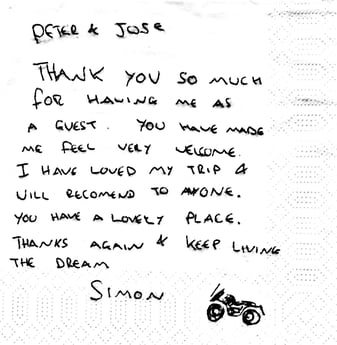 PETER & JOSE
THANK YOU SO MUCH
FOR HAVING ME AS
A GUEST. YOU HAVE MADE
ME FEEL VERY WELCOME.
I HAVE LOVED MY TRIP &
WILL RECOMEND TO ANYONE.
YOU HAVE A LOVELY PLACE.
THANKS AGAIN & KEEP LIVING
THE DREAM
SIMON